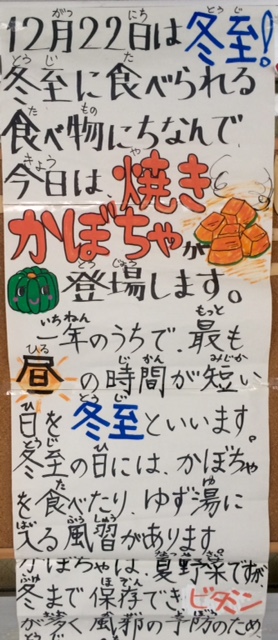 12月22日は冬至!
冬至に食べられる
食べ物にちなんで
今日は、焼き
かぼちゃが
登場します。
一年のうちで、最も
昼の時間が短い
日を冬至といいます。
冬至の日には、かぼちゃ
を食べたり、ゆず湯に
入る風習があります
かぼちゃは、夏野菜ですが
冬まで保存でき ビタミン
が多く風邪の予防のため